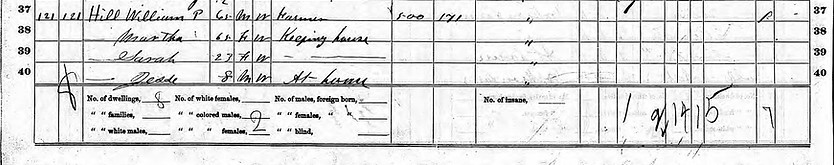 37 121 121 Hill William P 65 M W Farmer 500 171 " 37
38 — Martha 65 F W Keeping house " 38
39 — Sarah 27 F W — " 39
40 — Jesse 8 M W At home " 40
No. of dwellings, 8 No. of white females, No. of males, foreign born, No. of insane,
" " families, " " colored males, " " females, " "
" " white males, " " " females, 2 " " blind,
1 14 15 7